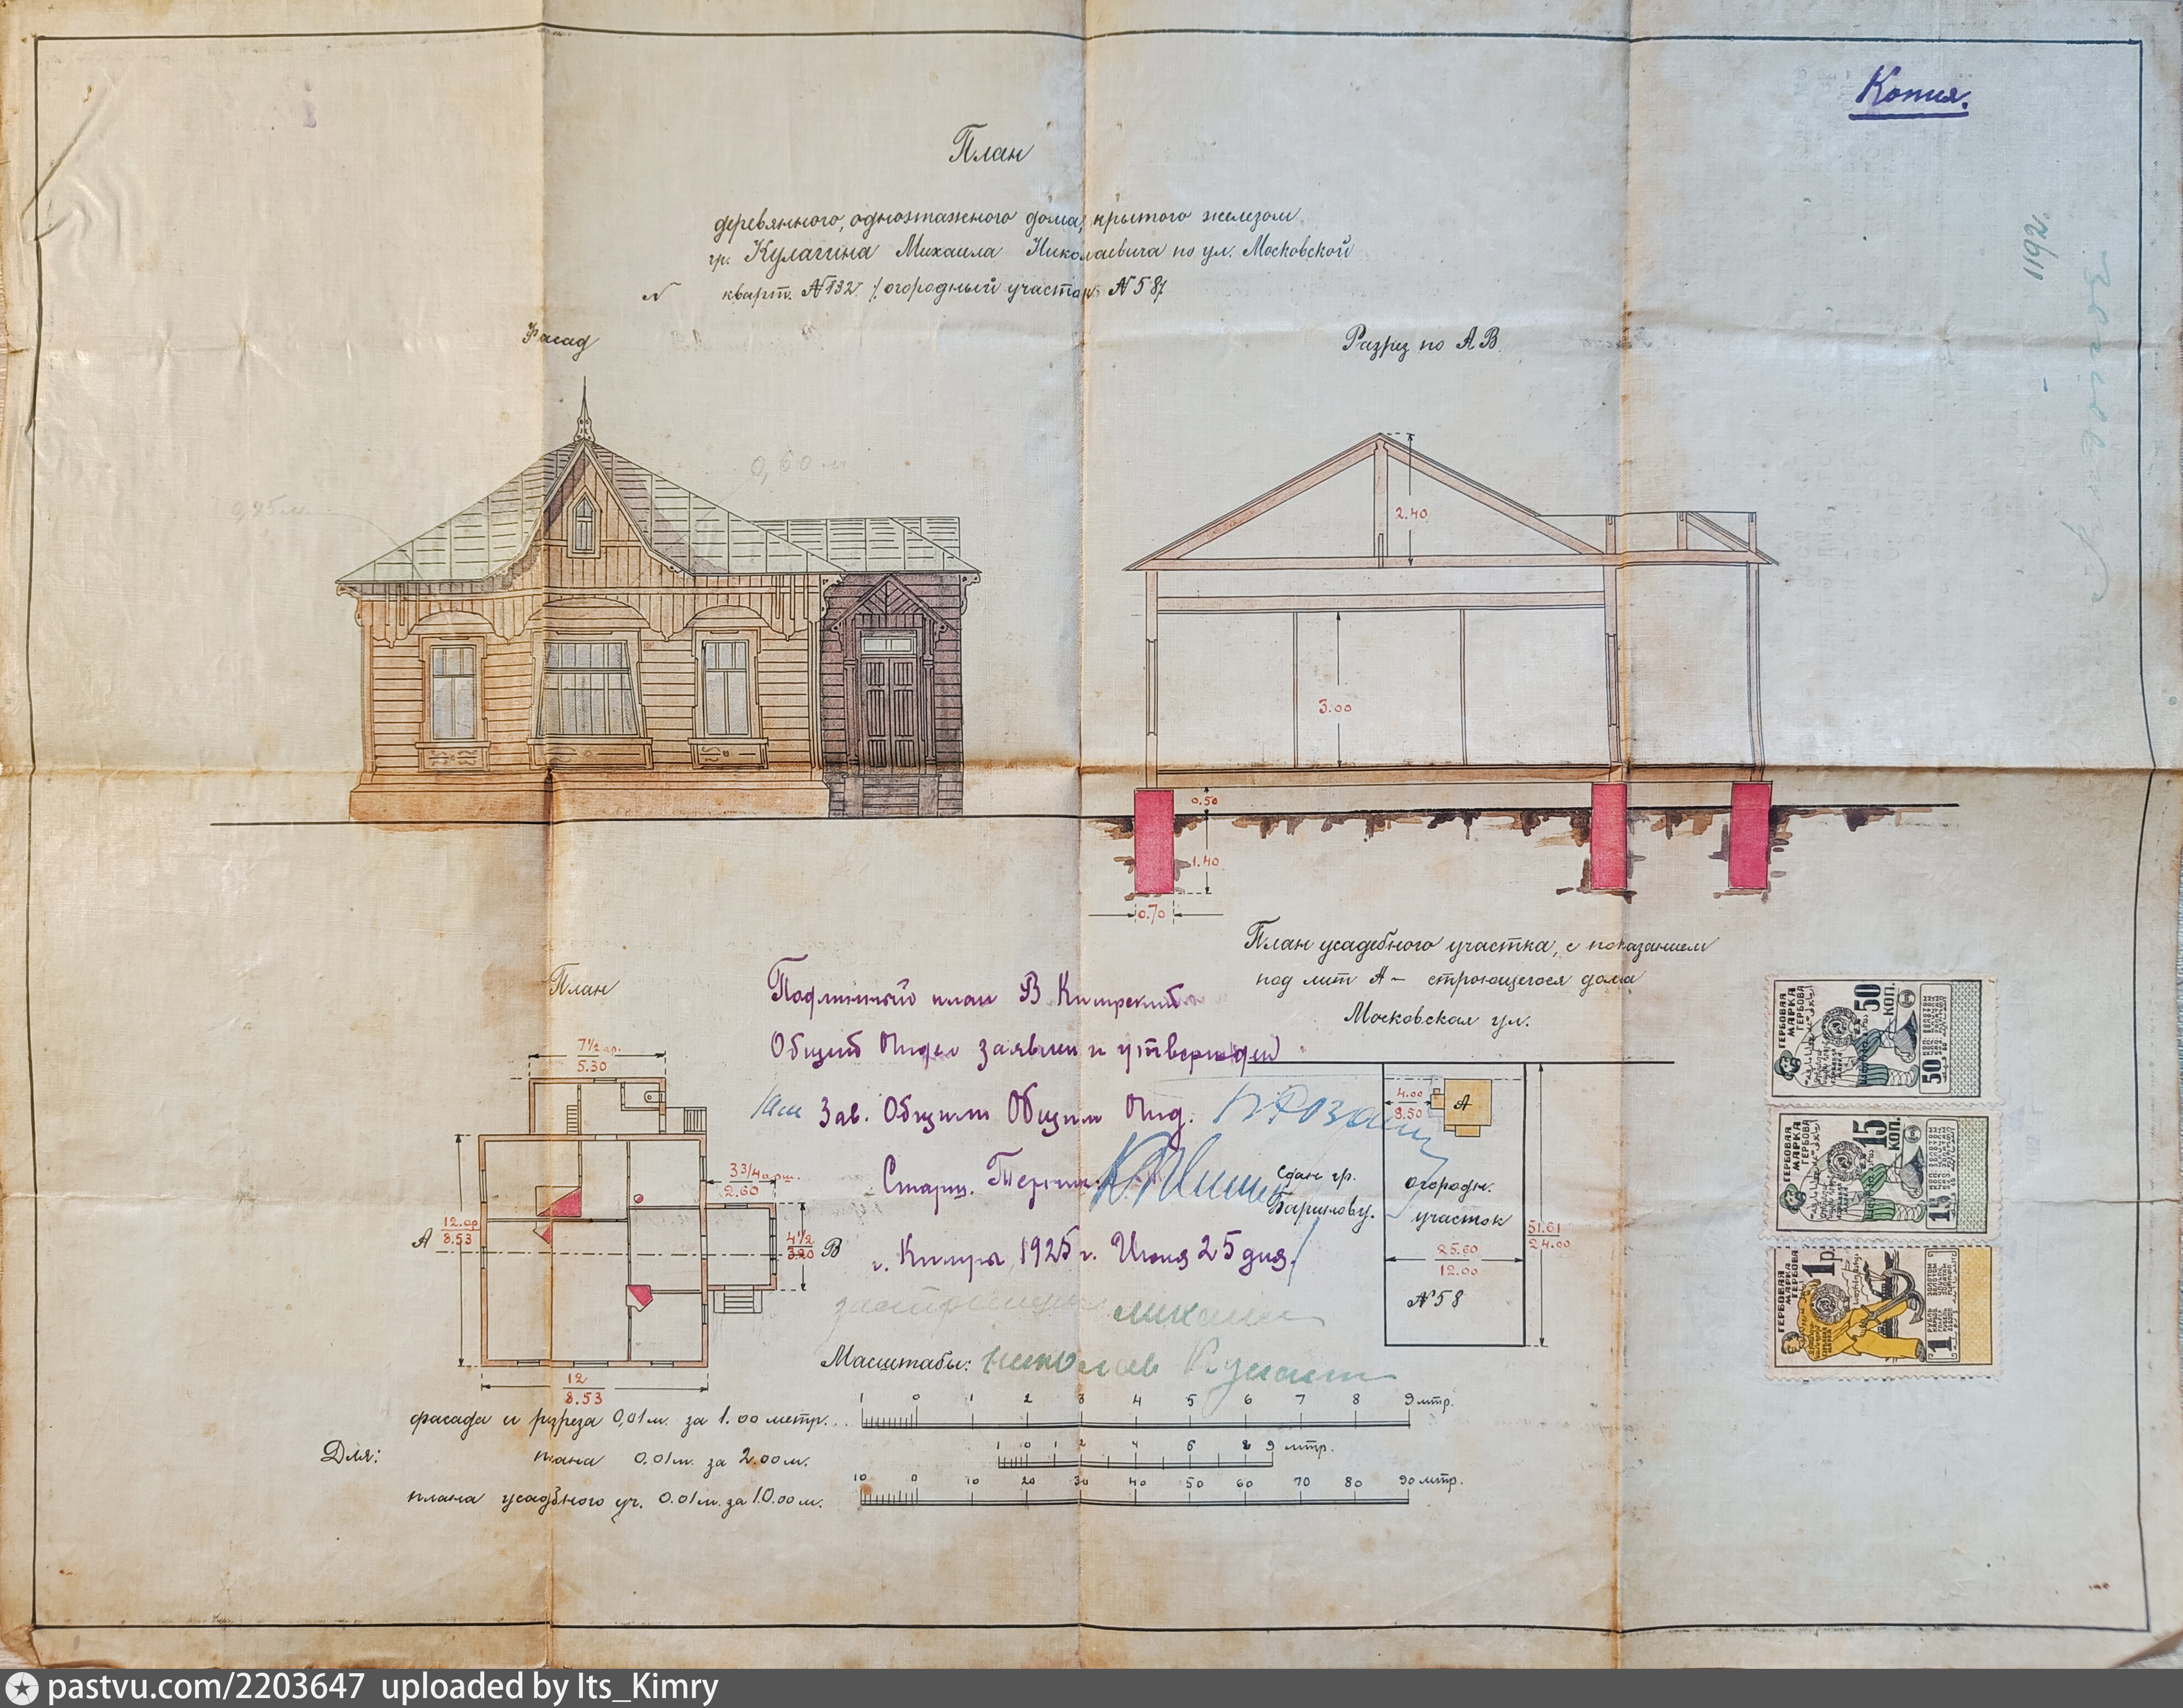 Копия.
План
деревянного, одноэтажного дома, крытого железом
гр. Кулагина Михаила Николаевича по ул. Московской
кварт. №132 /огородный участок №58/
1192.
Фасад
Разрез по АВ.
0,95 м
0,60 м
2.40
3.00
0.50
1.40
0.70
План усадебного участка, с показанием
под лит А – строющегося дома
Московская ул.
План
Подлинный план В Кимрский
Общий Отдел заявлен и утвержден
Зав. Общим Отд.
Старш.
г. Кимры 1925 г. Июня 25 дня
застройщик михаил
николаев Кулагин
7 1/2 ар.
5.30
3 3/4 арш.
2.60
12. ар
8.53
4 1/2
3.20
А
В
12
8.53
4.00
8.50
А
Сдан гр.
Баринову.
огородн.
участок
25.60
12.00
51.61
24.00
№58
ГЕРБОВАЯ МАРКА
50 КОП.
50
ГЕРБОВАЯ МАРКА
15 КОП.
15
ГЕРБОВАЯ МАРКА
1 р
1
Масштабы:
Для:
фасада и рзреза 0,01м. за 1.00 метр.
1 0 1 2 3 4 5 6 7 8 9 мтр.
плана 0.01м. за 2.00м.
1 0 1 2 4 6 8 9 мтр.
плана усадбного уч. 0.01м. за 10.00м.
10 0 10 20 30 40 50 60 70 80 90 мтр.
pastvu.com/2203647 uploaded by Its_Kimry